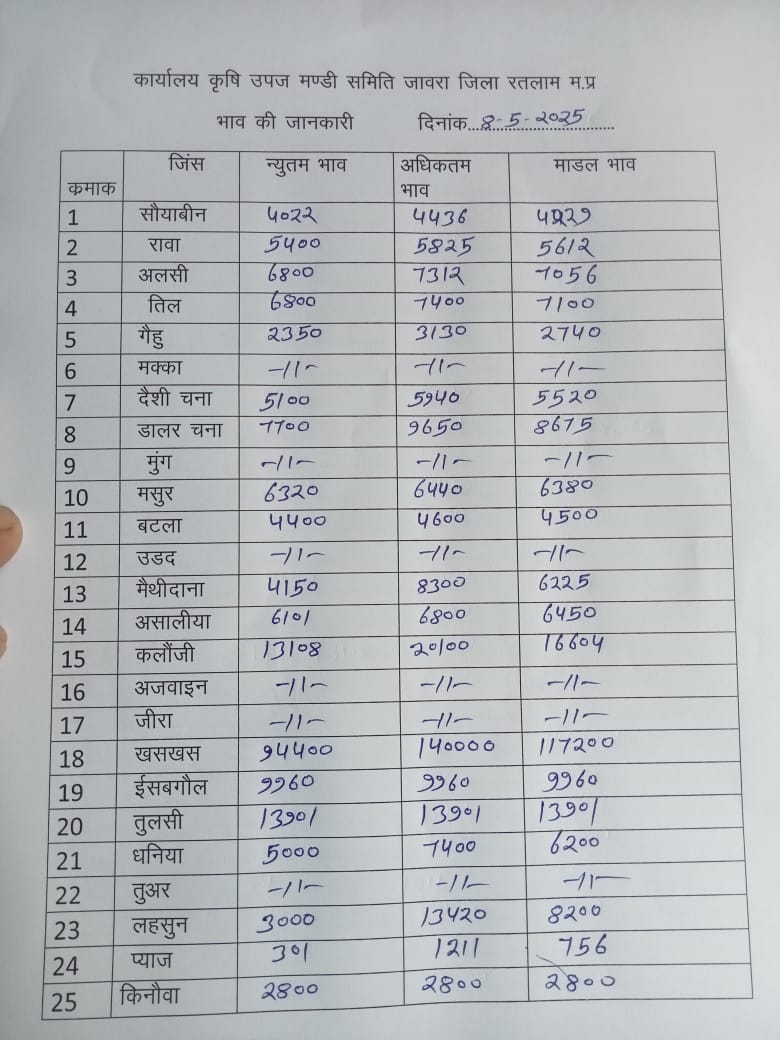 कार्यालय कृषि उपज मण्डी समिति जावरा जिला रतलाम म.प्र
भाव की जानकारी दिनांक...8-5-2025
कमाक जिंस न्युतम भाव अधिकतम भाव माडल भाव
1 सौयाबीन 4022 4436 4229
2 रावा 5400 5825 5612
3 अलसी 6800 7312 7056
4 तिल 6800 7400 7100
5 गैहु 2350 3130 2740
6 मक्का -11- -11- -11-
7 दैशी चना 5100 5940 5520
8 डालर चना 7700 9650 8675
9 मुंग -11- -11- -11-
10 मसुर 6320 6440 6380
11 बटला 4400 4600 4500
12 उडद -11- -11- -11-
13 मैथीदाना 4150 8300 6225
14 असालीया 6101 6800 6450
15 कलौंजी 13108 20100 16604
16 अजवाइन -11- -11- -11-
17 जीरा -11- -11- -11-
18 खसखस 94400 140000 117200
19 ईसबगौल 9960 9960 9960
20 तुलसी 13901 13901 13901
21 धनिया 5000 7400 6200
22 तुअर -11- -11- -11-
23 लहसुन 3000 13420 8200
24 प्याज 301 1211 756
25 किनौवा 2800 2800 2800